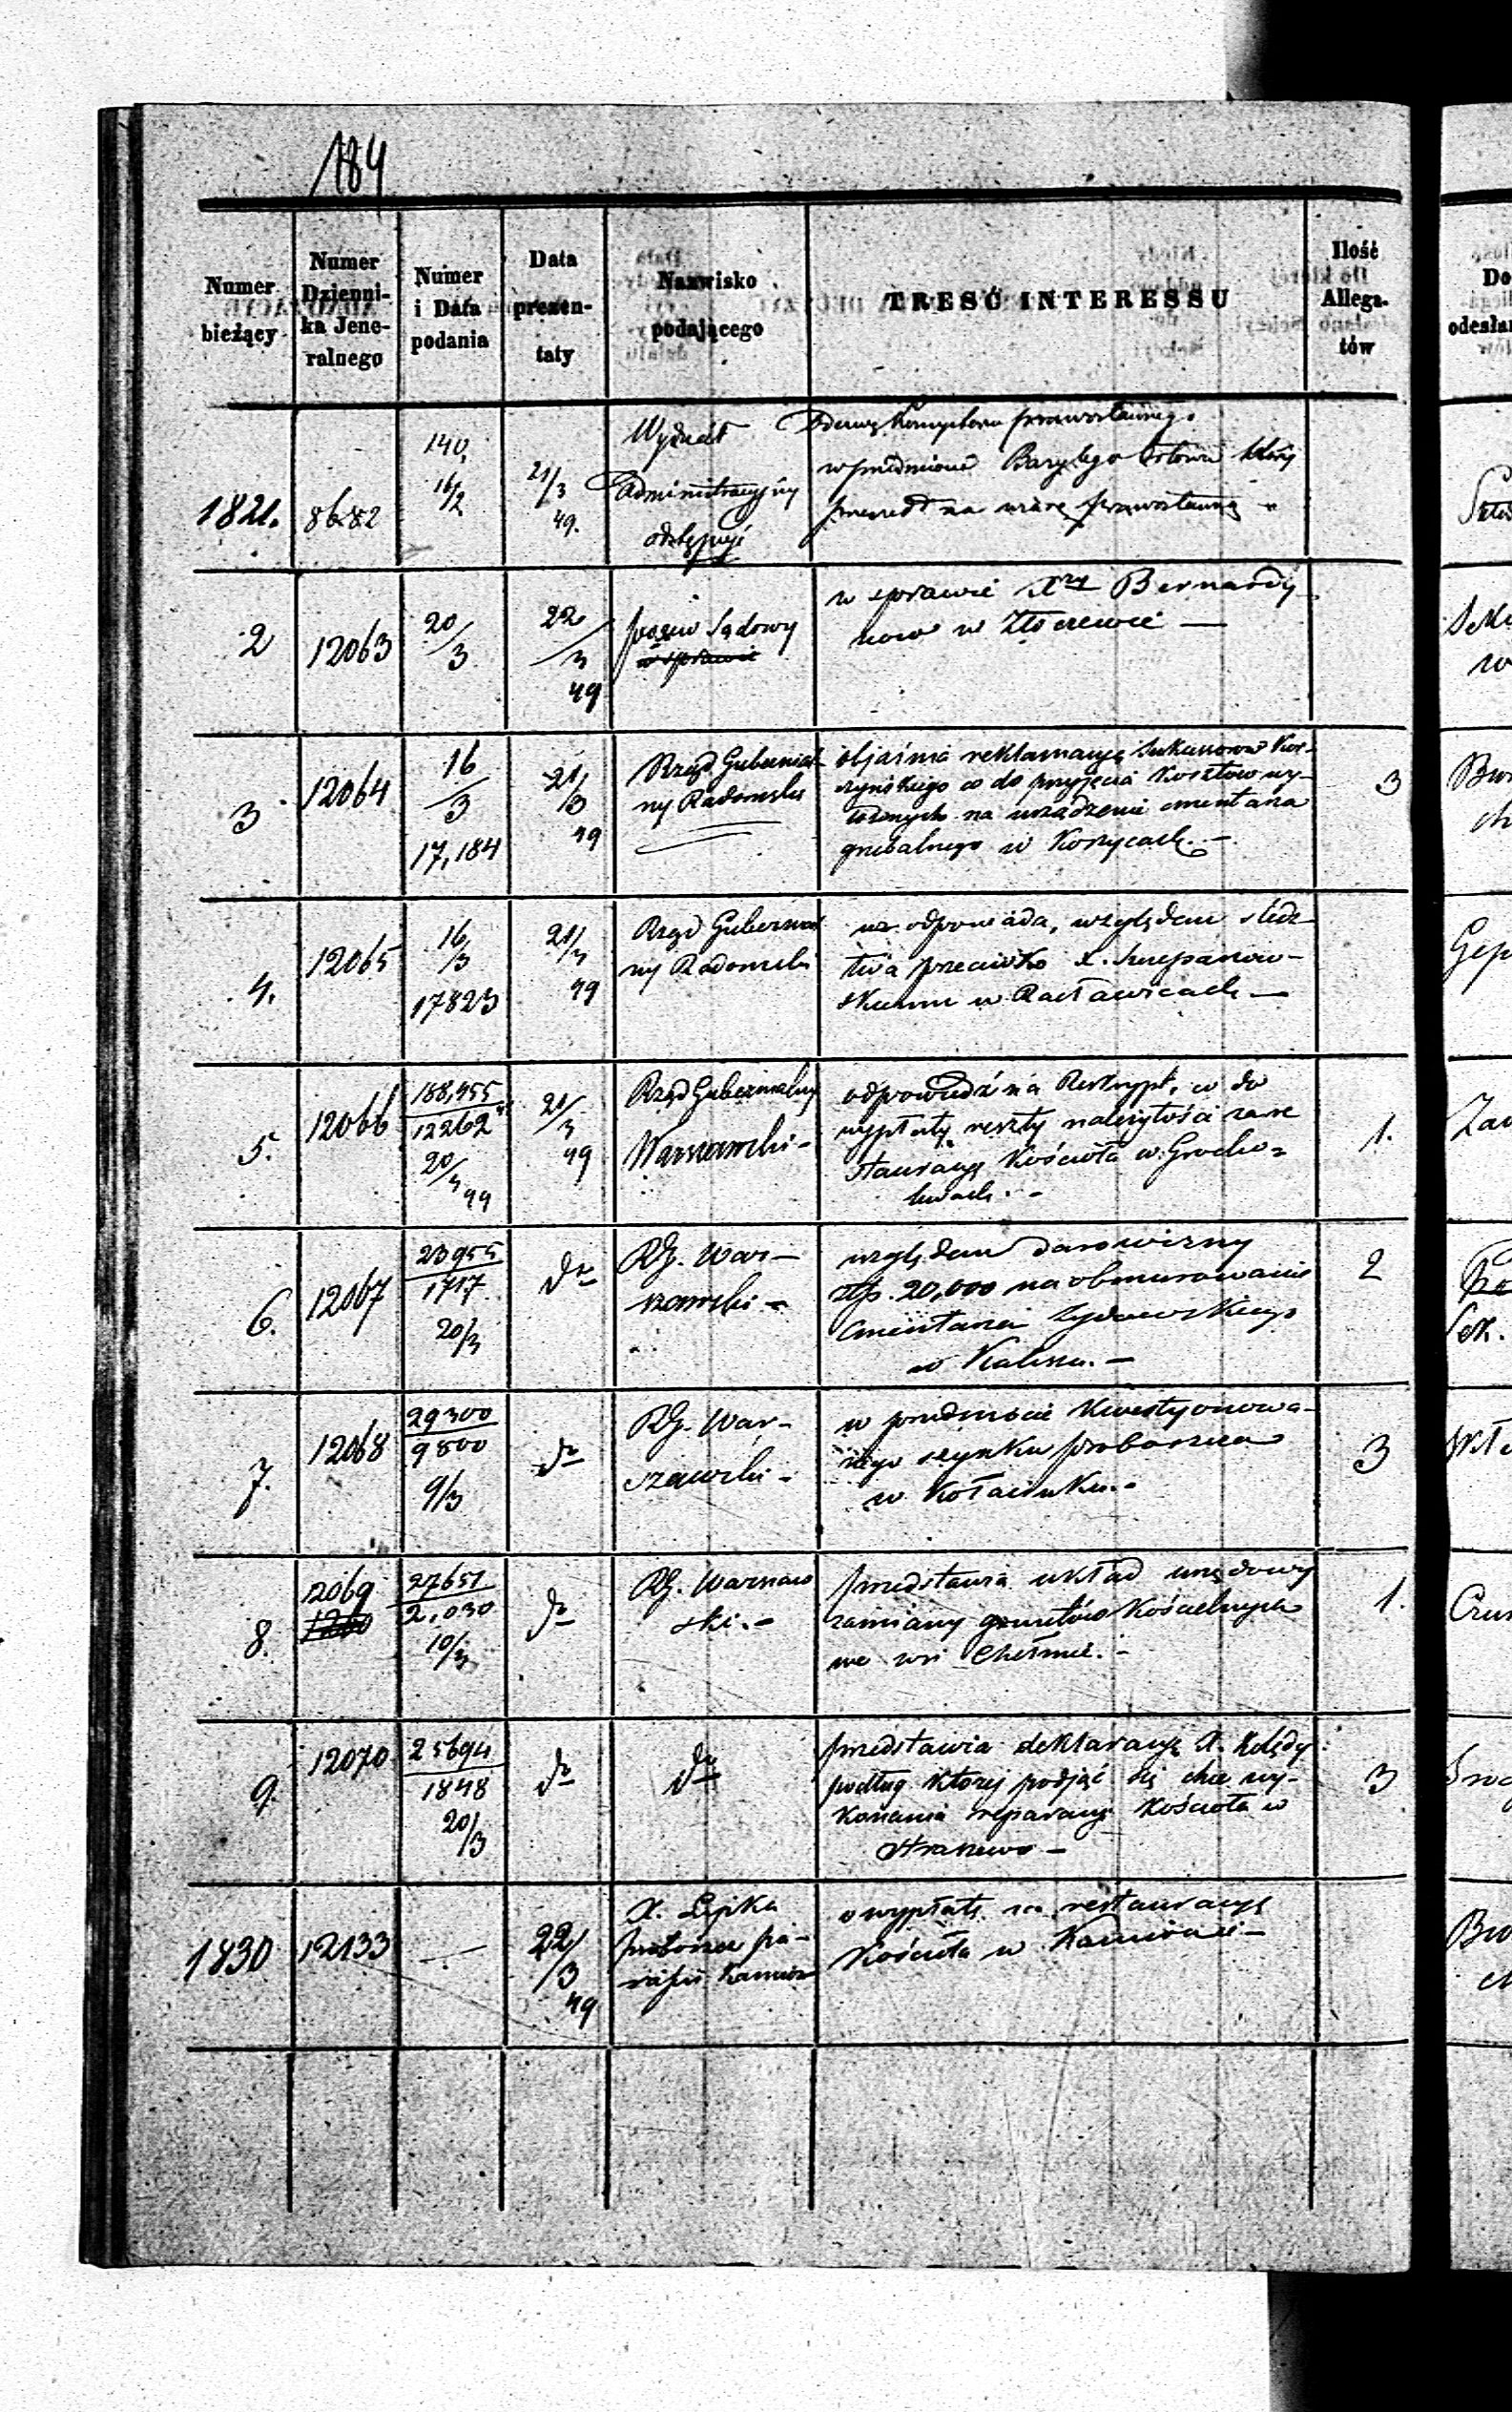 184
Numer bieżący
Numer Dzienni- ka Jene- ralnego
Numer i Data podania
Data prezen- taty
Nazwisko podającego
TREŚĆ INTERESSU
Ilość Allega- tów
1821.
8682
140,
16/2
21/3
49.
Wydział
Administracyjny
odstępuje
Odezwę Konsystorza prawosławnego
w przedmiocie
na wiarę prawosławną
2
12063
20/3
22/3
49
Sądowy
w sprawie
w sprawie Xży Bernardy
nów w Złoczewie —
3
12064
16/3
17,184
21/3
49
Rząd Gubernial
ny Radomski
objaśnia reklamacyą
co do przyjęcia kosztów wy-
łożonych na urządzenie cmentarza
grzebalnego w Koszycach. —
3
4.
12065
16/3
17823
21/3
49
Rząd Gubernial
ny Radomski
odpowiada, względem śledz
twa przeciwko X. Szczepanow-
skiemu w Racławicach —
5.
12066
188,955
12262
20/3 49
21/3
49
Rząd Gubernialny
Warszawski -
odpowiedź na Reskrypt, co do
wypłaty reszty należytości za re
stauracyę Kościoła w Grocho=
1.
6.
12067
23955
1717
20/3
do
RG. War-
szawski -
względem darowizny
złp. 20,000 na obmurowanie
Cmentarza żydowskiego
w Kaliszu. —
2
7.
12068
29300
9800
9/3
do
RG. War-
szawski -
w przedmiocie kwestyonowa-
nego szynku proboszcza
w Kołacinku. -
3
8.
12069
27651
2,030
10/3
do
RG. Warszaw
ski. -
przedstawia układ urzędowy
zamiany gruntów Kościelnych
we wsi Chełmie. -
1.
9.
12070
25694
1848
20/3
do
do
przedstawia deklaracyę X. Kolędy
podług której podjąć się chce wy-
konania reparacyi Kościoła w
3
1830
12133
—
22/3
49
X. Lipka
proboszcz pa-
rafii
o wypłatę na restauracyę
Kościoła w
Do
odesłan